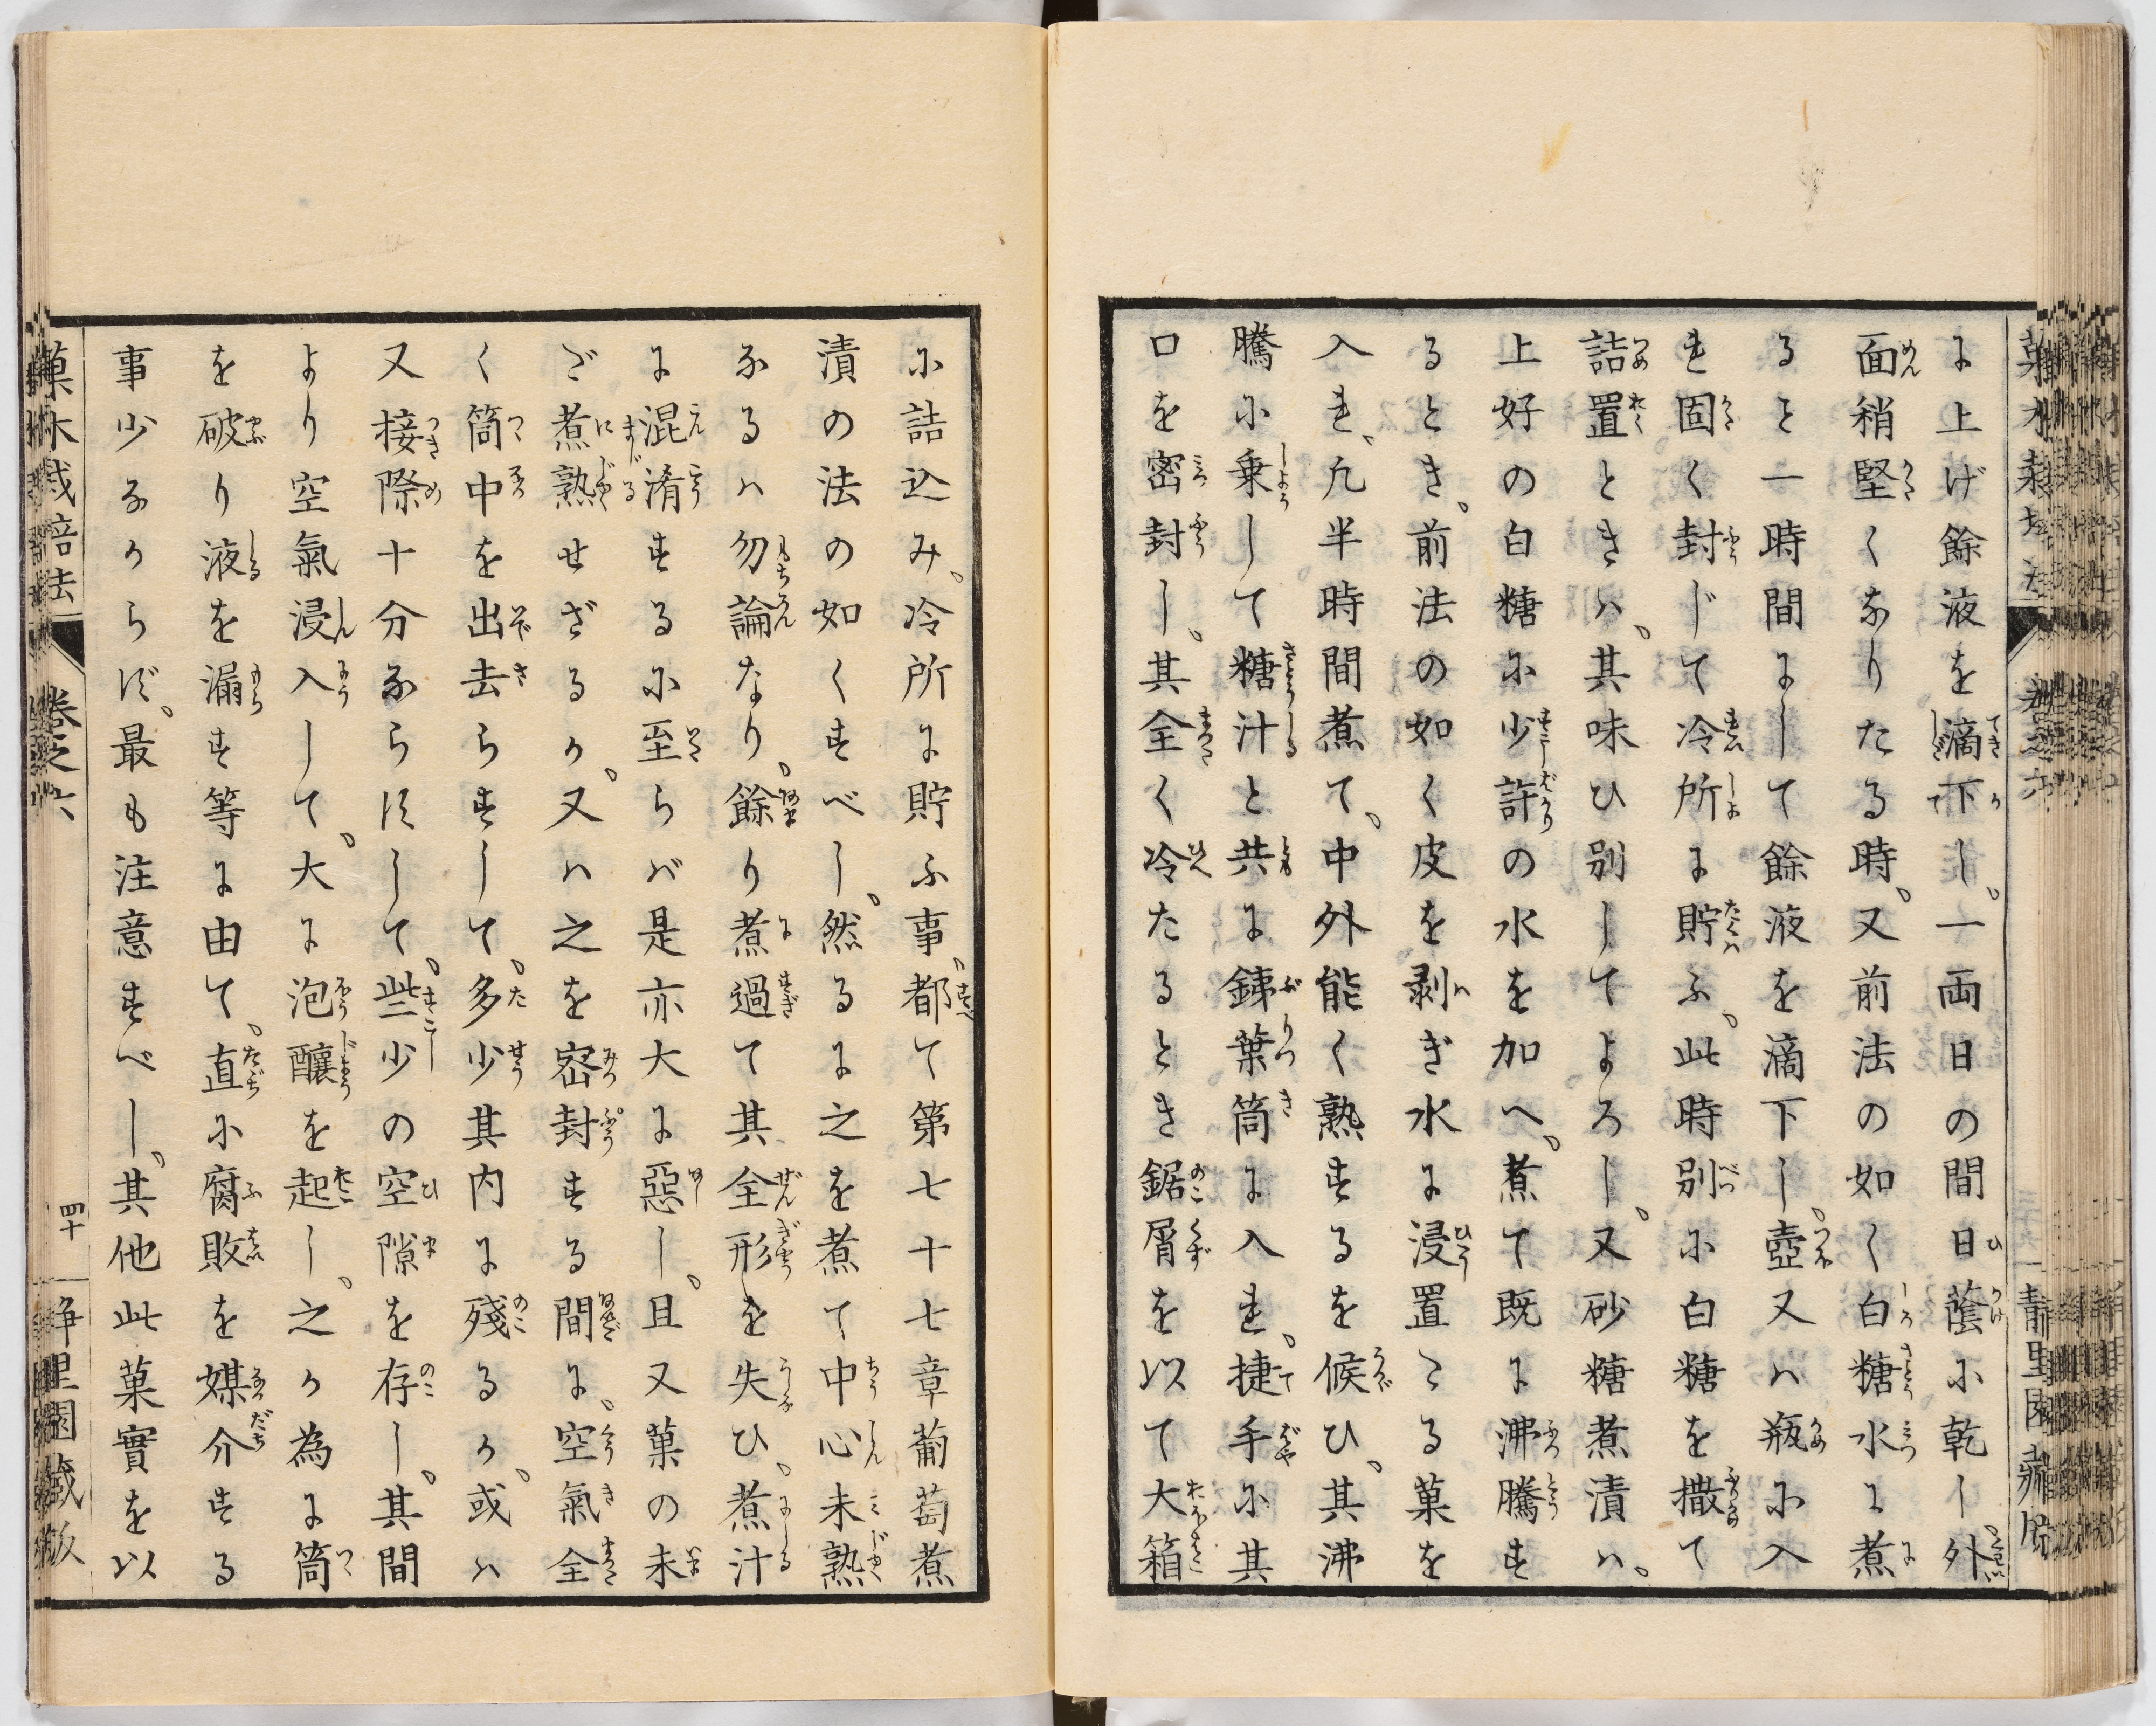 に上げ餘液を滴下し、一両日の間日蔭に乾し、外
面稍堅くなりたる時、又前法の如く白糖水に煮
ること一時間にして餘液を滴下し、壺又ハ瓶に入
れ固く封じて冷所に貯ふ、此時別に白糖を撒て
詰置ときハ、其味ひ別してよろし、又砂糖煮漬ハ、
上好の白糖に少許の水を加へ、煮て既に沸騰す
るとき、前法の如く皮を剥ぎ水に浸置たる菓を
入れ、凢半時間煮て、中外能く熟するを候ひ、其沸
騰に乗して糖汁と共に銕葉筒に入れ、捷手に其
口を密封し、其全く冷たるとき鋸屑を以て大箱
に詰込み、冷所に貯ふ事、都て第七十七章葡萄煮
漬の法の如くすべし、然るに之を煮て中心未熟
なるハ勿論なり、餘り煮過て其全形を失ひ、煮汁
に混淆するに至らバ是亦大に惡し、且又菓の未
だ煮熟せざるか、又ハ之を宻封する間に、空氣全
く筒中を出去らずして、多少其内に殘るか、或ハ
又接際十分ならずして、些少の空隙を存し、其間
より空氣浸入して、大に泡釀を起し、之か為に筒
を破り液を漏す等に由て、直に腐敗を媒介する
事少なからず、最も注意すべし、其他此菓實を以
菓木栽培法
卷之六
四十